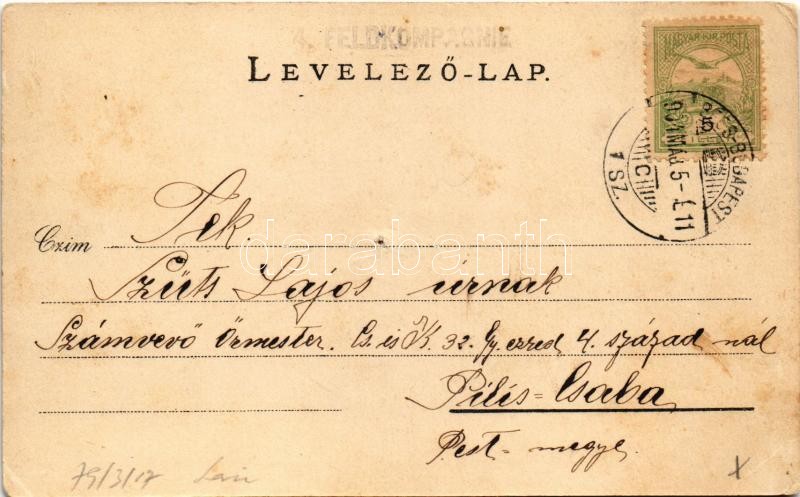 4. FELDKOMPAGNIE
LEVELEZŐ-LAP.
MAGYAR KIR. POSTA
5
BÉCS-BUDAPEST
901 MÁJ 5-
1 SZ.
C
Czim Tek.
Szüts Lajos úrnak
Számvevő Őrmester. Cs. és K. 32. Gy. ezred 4. század nál
Pilis=Csaba
Pest-megye.
darabanth
79/3/17
X